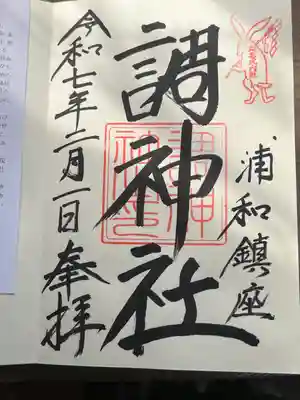 浦和鎮座
調神社
令和七年二月一日奉拝